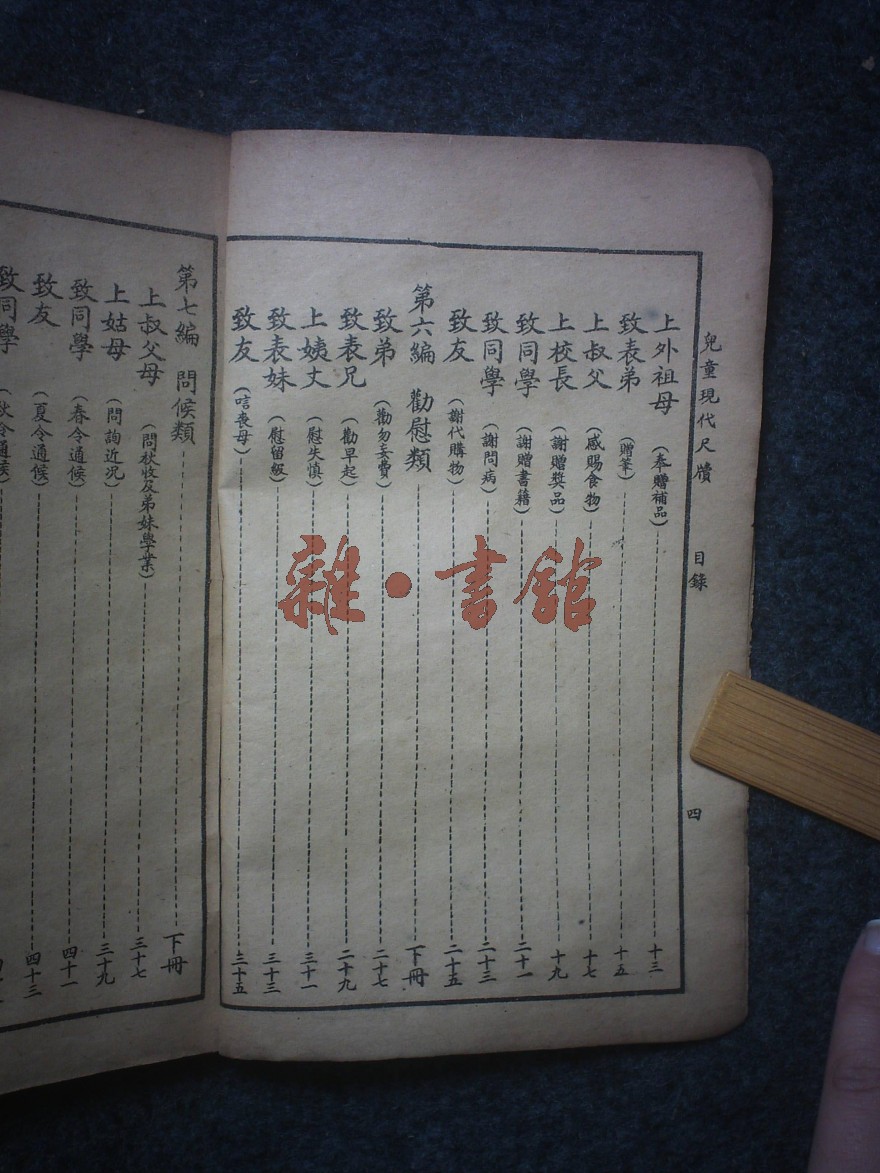 兒童現代尺牘 目錄 四
上外祖母（奉贈補品）十三
致表弟（贈筆）十五
上叔父（感賜食物）十七
上校長（謝贈獎品）十九
致同學（謝贈書籍）二十一
致同學（謝問病）二十三
致友（謝代購物）二十五
第六編 勸慰類 下冊
致弟（勸勿妄費）二十七
致表兄（勸早起）二十九
上姨丈（慰失慎）三十一
致表妹（慰留級）三十三
致友（唁喪母）三十五
第七編 問候類 下冊
上叔父母（問秋收及弟妹學業）三十七
上姑母（問詢近況）三十九
致同學（春令通候）四十一
致友（夏令通候）四十三
致同學（秋令通候）
雜·書館